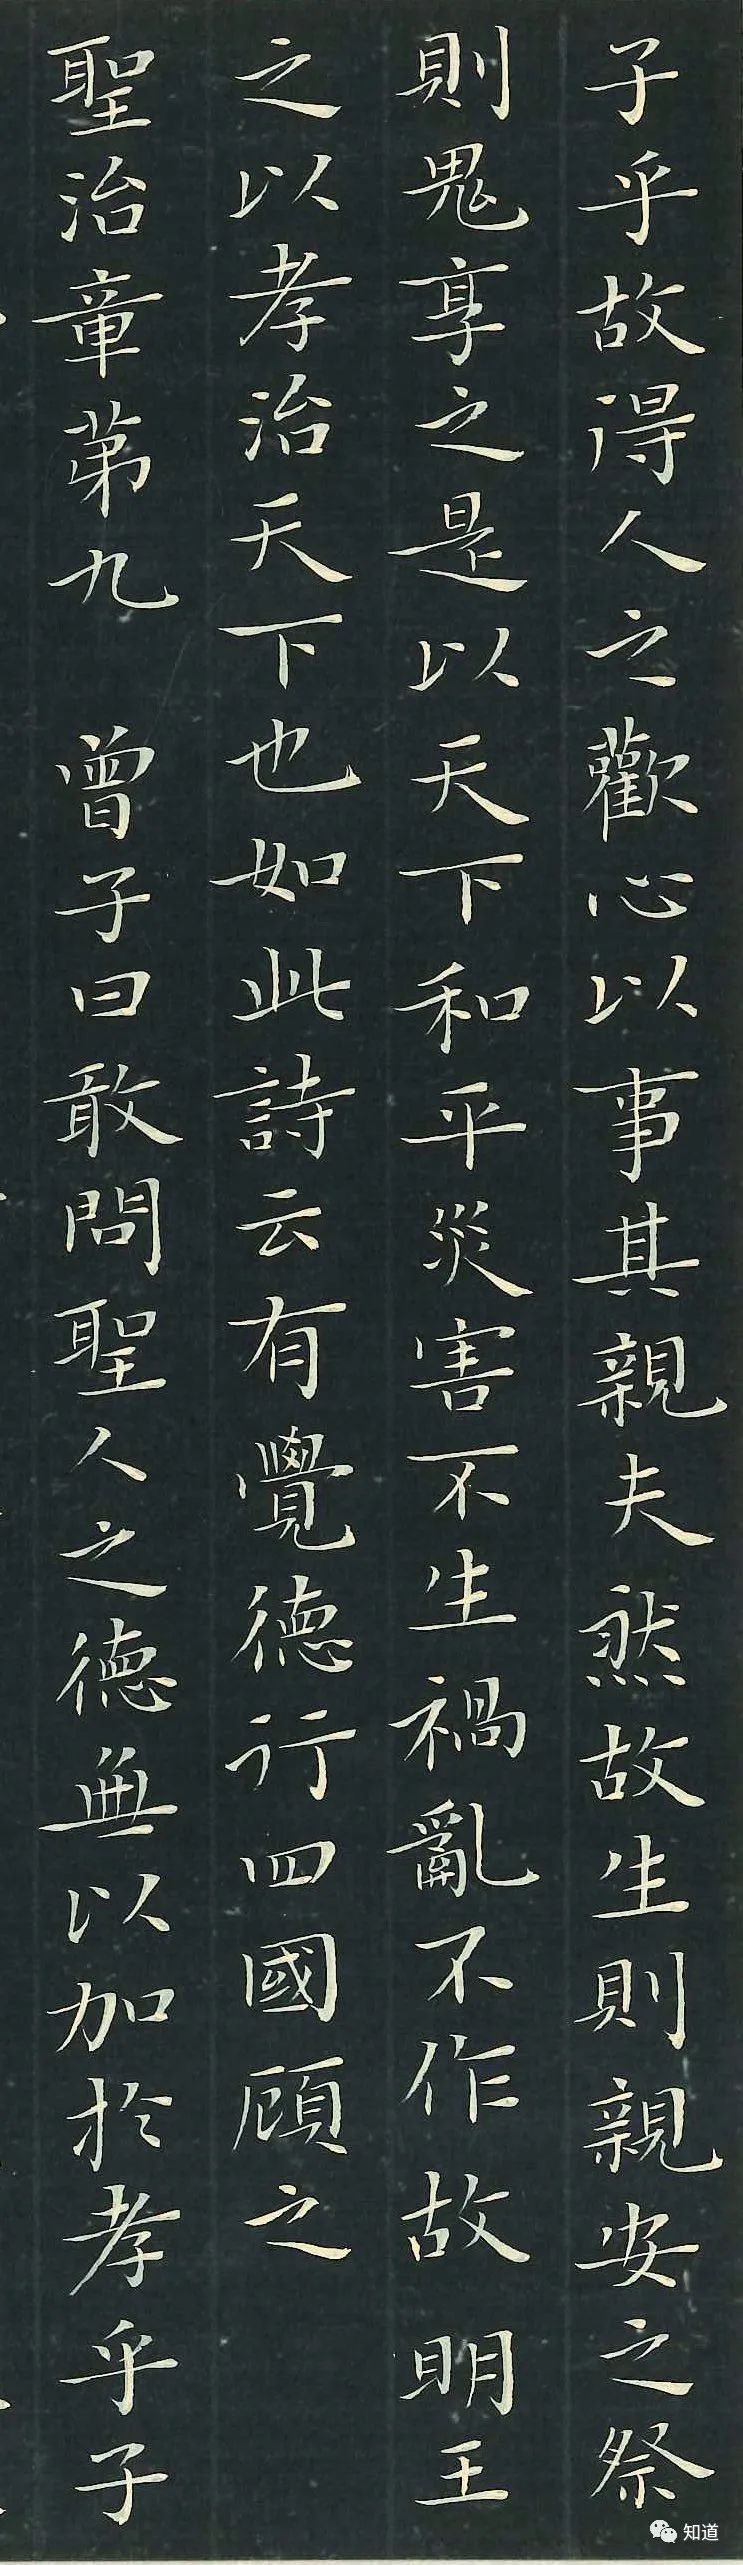 子乎故得人之歡心以事其親夫然故生則親安之祭
則鬼享之是以天下和平災害不生禍亂不作故明王
之以孝治天下也如此詩云有覺德行四國順之
聖治章第九 曾子曰敢問聖人之德無以加於孝乎子
知道